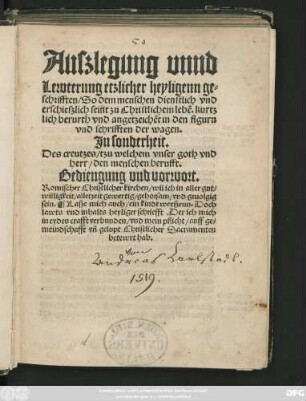 Auszlegung vnnd
Lewterung etzlicher heyligenn ge-
schrifften/ So dem menschen dienstlich vnd
erschieszlich seint zu Christlichem lebē. kurtz
lich berurth vnd angetzeichēt in den figurn
vnd schrifften der wagen.
In sonderheit.
Des creutzes/ tzu welchem vnser goth vnd
herr/ den menschen berufft.
Bedingung vnd vorwort.
Romischer Christlicher kirchen/ wil ich in aller gut/
willigkeit/ allertzeit gewertig/ gehorsam/ vnd gmolgig
sein. Lasse mich auch/ ein kindt weyszenn. Doch
lawts vnd inhalts heyliger schriefft Der ich mich
in erdes crafft verbunden/ vnd mein pflicht/ auff ge-
meindschafft vn̄ gelopt Christlicher Sacramenten
betewrt hab.
von
Andreas Karlstadt.
1519.